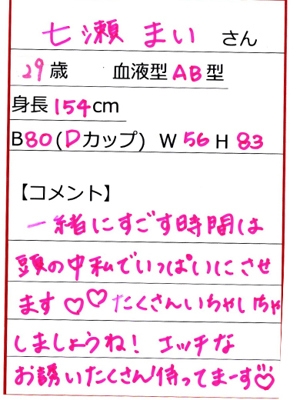 七瀬 まい さん
29歳 血液型AB型
身長154cm
B80(Dカップ) W56 H83
【コメント】
一緒にすごす時間は
頭の中私でいっぱいにさせ
ます♡♡たくさんいちゃいちゃ
しましょうね！エッチな
お誘いたくさん待ってまーす♡